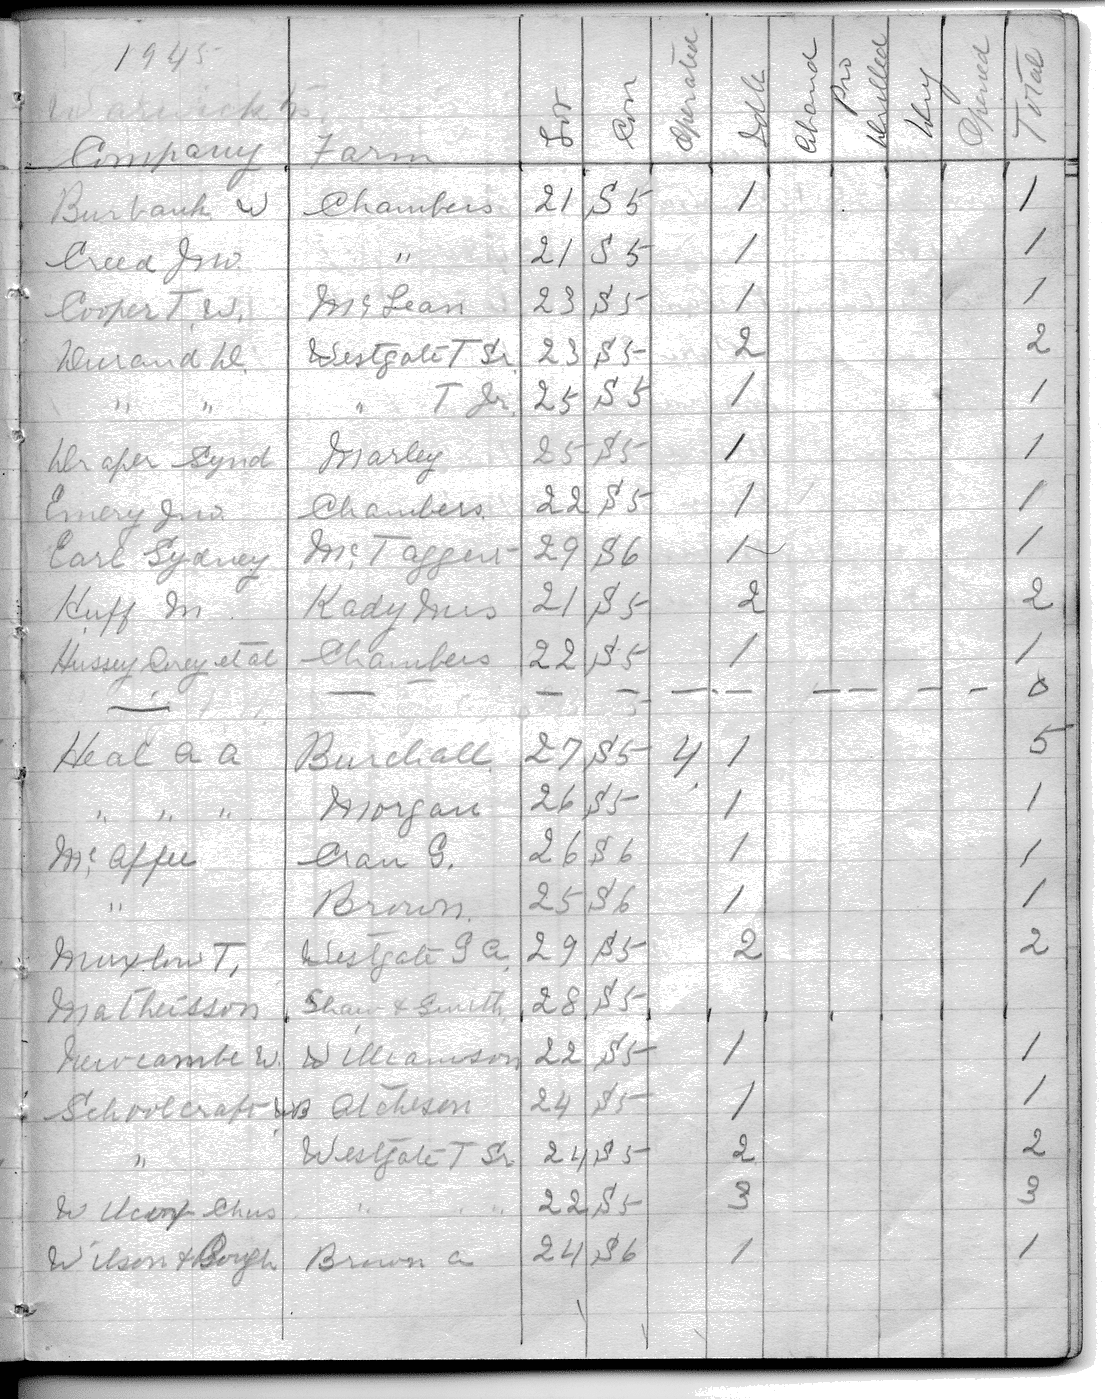 1945
Warwick
Company Farm Lot Con Operated Idle Aband Pro Drilled Dry Opened Total
Burbank W Chambers 21 S5 1 1
Creed Jno. " 21 S5 1 1
Cooper T. W. McLean 23 S5 1 1
Durand D. Westgate T Sr. 23 S5 2 2
" " " T Jr. 25 S5 1 1
Draper Synd Marley 25 S5 1 1
Emery Jno Chambers 22 S5 1 1
Earl Sydney McTaggert 29 S6 1 1
Huff M. Kady Mrs 21 S5 2 2
Hussey et al Chambers 22 S5 1 1
— — — — — — — — — — 0
Heal A A Burchall 27 S5 4 1 5
" " " Morgan 26 S5 1 1
Mc Affee Cran G. 26 S6 1 1
" Brown 25 S6 1 1
Muxlow T. Westgate G A. 29 S5 2 2
Matheisson Shaw & Smith 28 S5
Newcambe W. Williamson 22 S5 1 1
Schoolcraft Atcheson 24 S5 1 1
" Westgate T Sr 24 S5 2 2
Chas " " 22 S5 3 3
Wilson & Brown A 24 S6 1 1